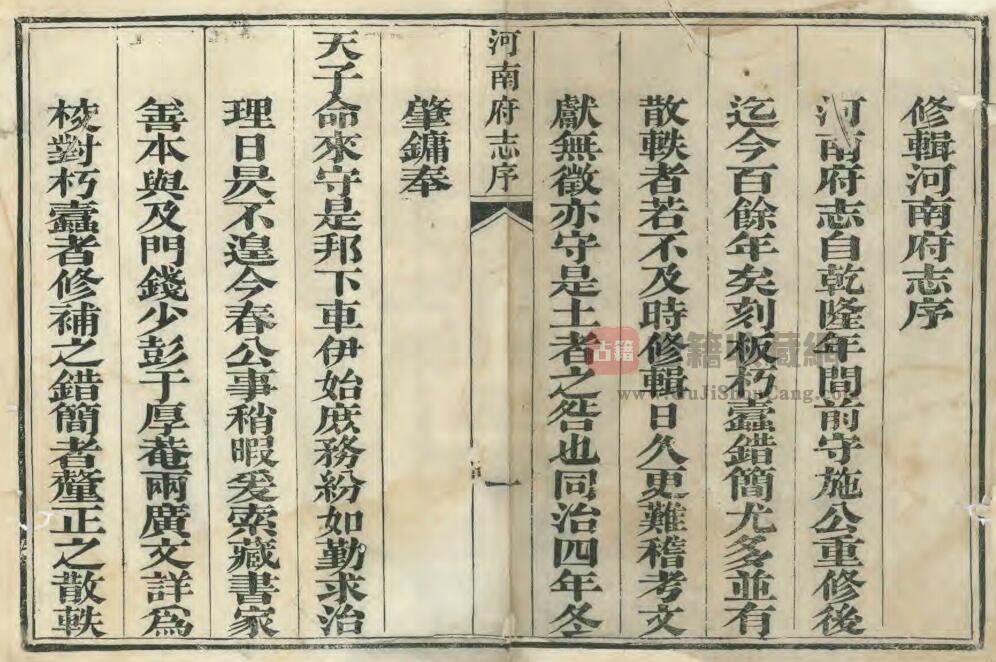 修輯河南府志序
河南府志自乾隆年間前守施公重修後
迄今百餘年矣刻板朽蠹錯簡尤多並有
散軼者若不及時修輯日久更難稽考文
獻無徵亦守是土者之咎也同治四年冬
肇鏞奉
天子命來守是邦下車伊始庶務紛如勤求治
理日昃不遑今春公事稍暇爰索藏書家
善本與及門錢少彭于厚菴兩廣文詳為
校對朽蠹者修補之錯簡者釐正之散軼
河南府志序
一
古籍
www.GuJiShouCang.com